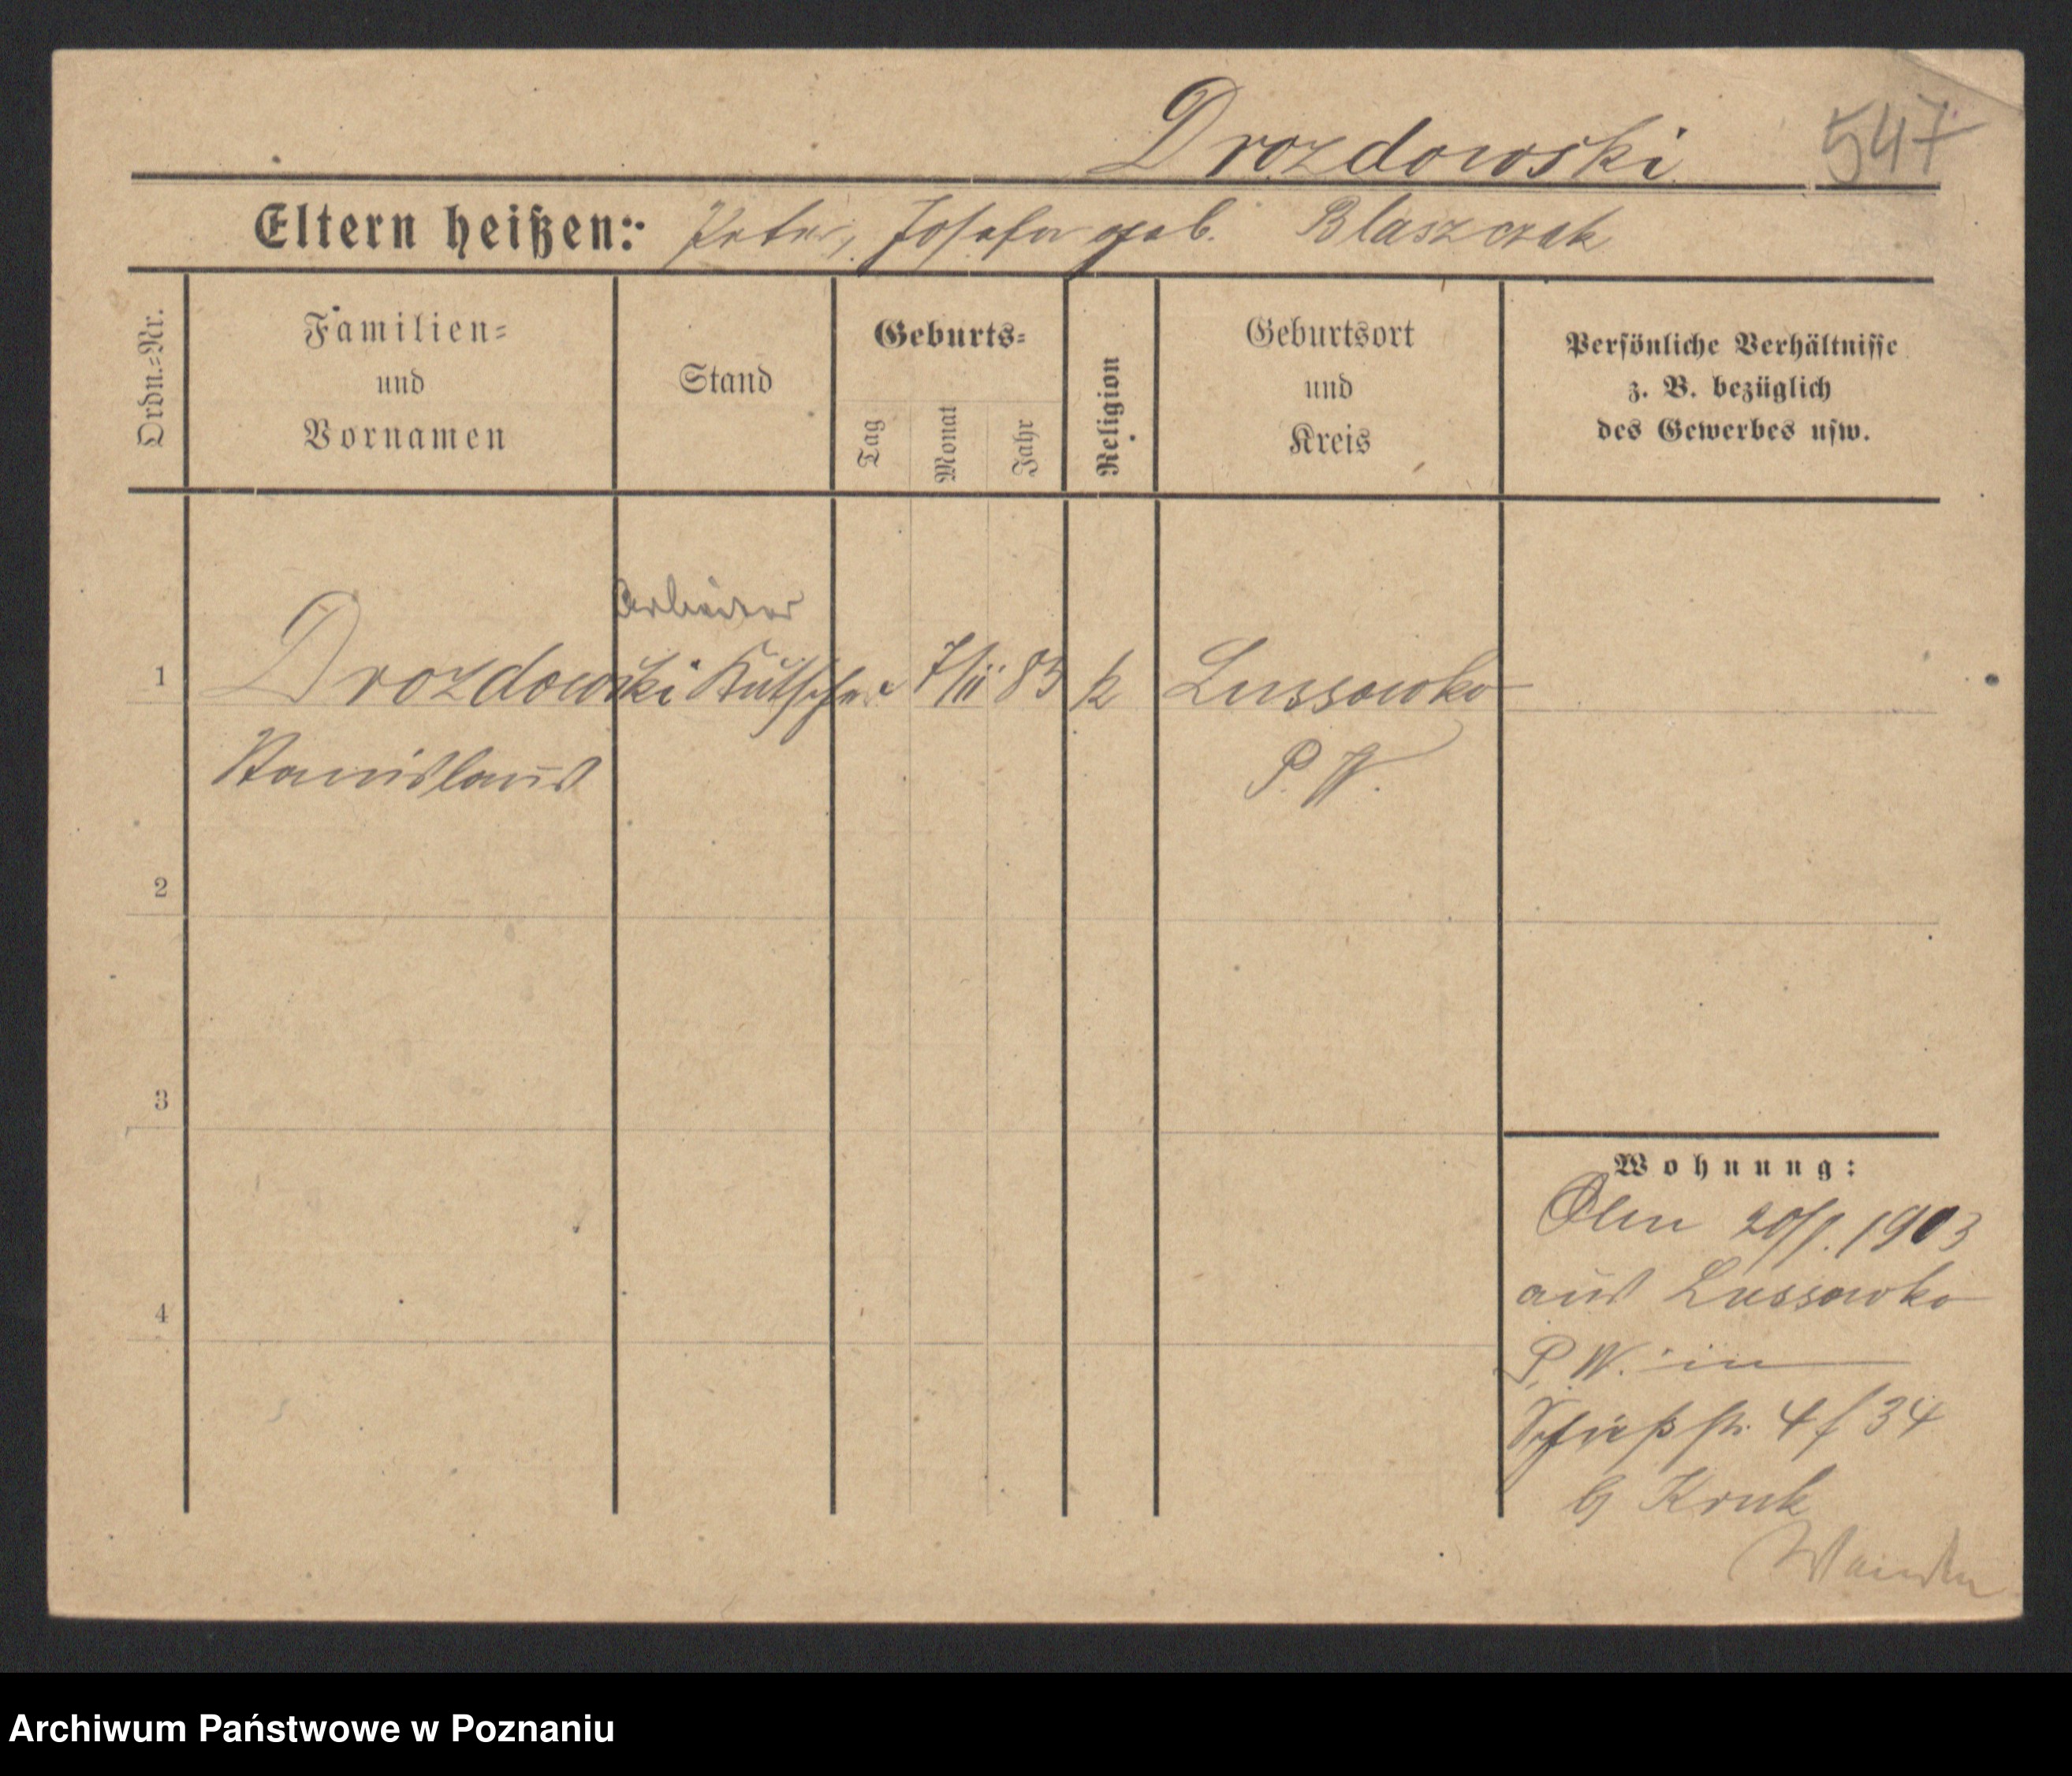 Drozdowski 547
Eltern heißen: Peter, Josefa geb. Blaszczak
Ordn.=Nr.
Familien=
und
Vornamen
Stand
Geburts=
Tag
Monat
Jahr
Religion
Geburtsort
und
Kreis
Persönliche Verhältnisse
z. B. bezüglich
des Gewerbes usw.
Arbeiter
1 Drozdowski Kutscher 7/11 83 k Lussowko
Stanislaus P. W.
2
3
4
Wohnung:
20/1. 1903
aus Lussowko
P. W. in
4 / 34
b/ Kruk
Archiwum Państwowe w Poznaniu